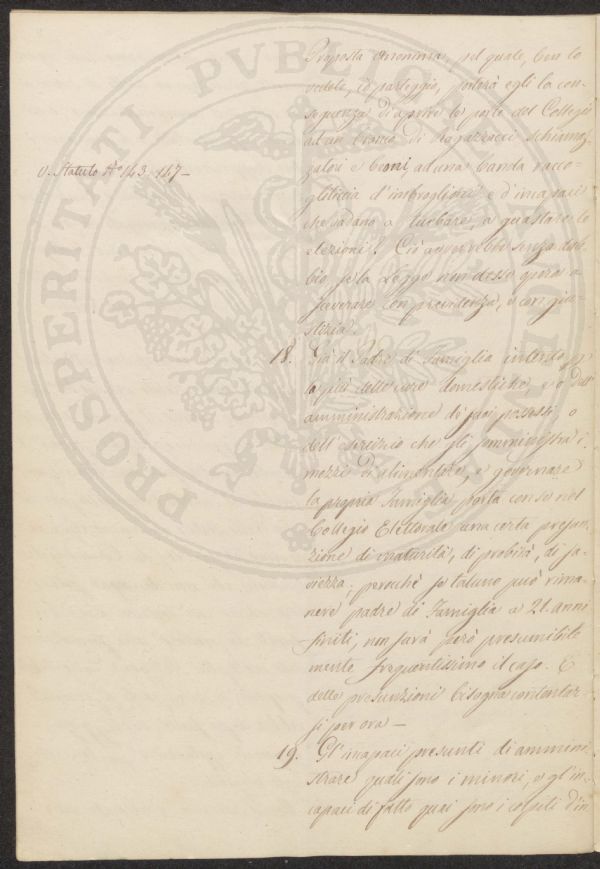 Proposta anonima, pel quale, ben lo
vedete, io parteggio, porterà egli la con-
seguenza di aprire le porte del Collegio
ad un branco di Ragazzacci schiamaz-
zatori e ad una banda racco-
gliticcia d'imbroglioni e d'incapaci
che vadano a turbare, a guastare le
elezioni? Ciò avverrebbe senza dub-
bio, se la Legge non desse opera a
sceverare con previdenza, e con giu-
stizia.
V. Statuto N° 143. 147 –
18. Già il Padre di Famiglia intendo
lo più delle cure domestiche, e o dell'
amministrazione di suoi possessi, o
dell'esercizio che gli somministra i
mezzi di alimentare, e governare
la propria Famiglia porta con se nel
Collegio Elettorale una certa presun-
zione di maturità, di probità, di sa-
viezza; perocchè se taluno può rima-
nere padre di Famiglia a 21. anni
finiti, non sarà però presumibil-
mente frequentissimo il caso. E
delle presunzioni bisogna contentar-
si per ora –
19. Gl'incapaci presunti di ammini-
strare quali sono i minori, e gl'in-
capaci di fatto quai sono i colpiti d'in
PROSPERITATI PVBLICAE